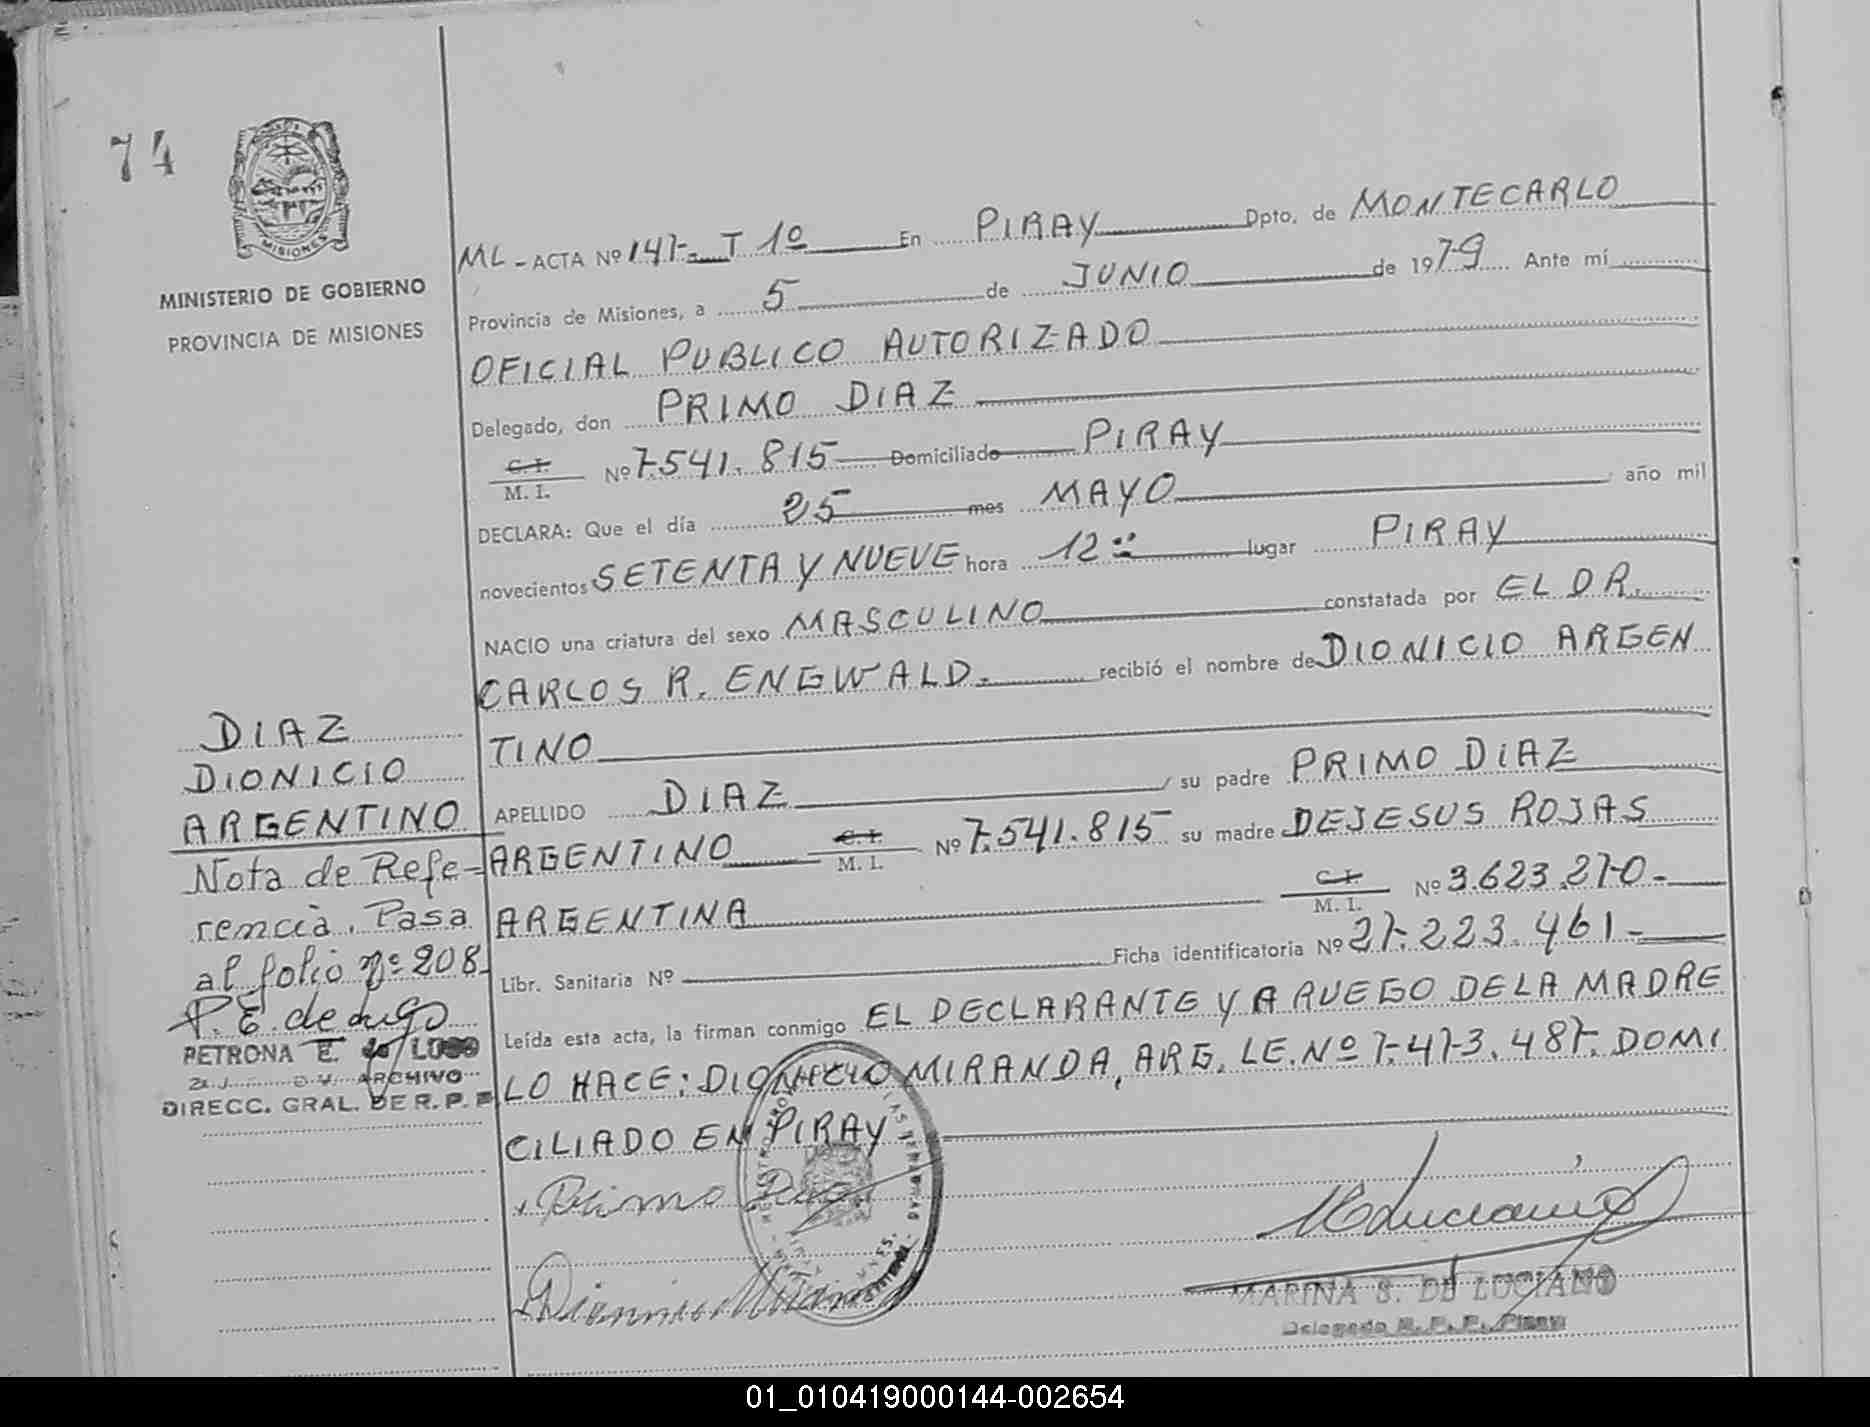 74
MISIONES
MINISTERIO DE GOBIERNO
PROVINCIA DE MISIONES
ML - ACTA Nº 147- T 1º En PIRAY Dpto. de MONTECARLO
Provincia de Misiones, a 5 de JUNIO de 1979 Ante mí
OFICIAL PUBLICO AUTORIZADO
Delegado, don PRIMO DIAZ
C. I.
M. I. Nº 7.541.815 Domiciliado PIRAY
DECLARA: Que el día 25 mes MAYO año mil
novecientos SETENTA Y NUEVE hora 12 lugar PIRAY
NACIO una criatura del sexo MASCULINO constatada por EL DR.
CARLOS R. ENGWALD. recibió el nombre de DIONICIO ARGEN
TINO
APELLIDO DIAZ su padre PRIMO DIAZ
ARGENTINO C. I.
M. I. Nº 7.541.815 su madre DEJESUS ROJAS
ARGENTINA C. I.
M. I. Nº 3.623.270-
Libr. Sanitaria Nº Ficha identificatoria Nº 27.223.461-
Leída esta acta, la firman conmigo EL DECLARANTE Y A RUEGO DE LA MADRE
LO HACE: DIONICIO MIRANDA, ARG. LE. Nº 7.473.487. DOMI
CILIADO EN PIRAY
Primo Diaz
MARINA S. DE LUCIANO
Delegada R. P. P. Piray
DIAZ
DIONICIO
ARGENTINO
Nota de Refe-
rencia. Pasa
al folio nº 208
P. E. de Lugo
PETRONA E. de LUGO
ARCHIVO
DIRECC. GRAL. DE R. P. P.
01_010419000144-002654